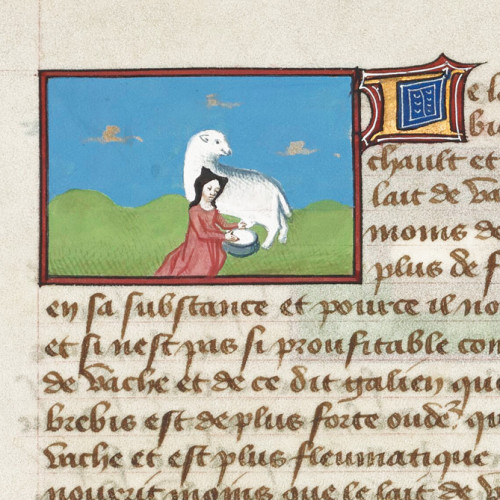 De la
bre
chault et
lait de va
moins de
plus de f
en sa substance et pource il no
et si nest pas si proufitable com
de vache et de ce dit galien que
brebis est de plus forte oude². qu
vache et est plus fleumatique
nourrit moins que le lait de v